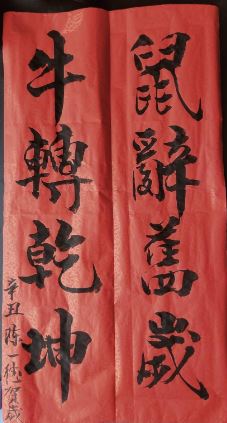 鼠辭舊歲
牛轉乾坤
辛丑陈一德贺歲